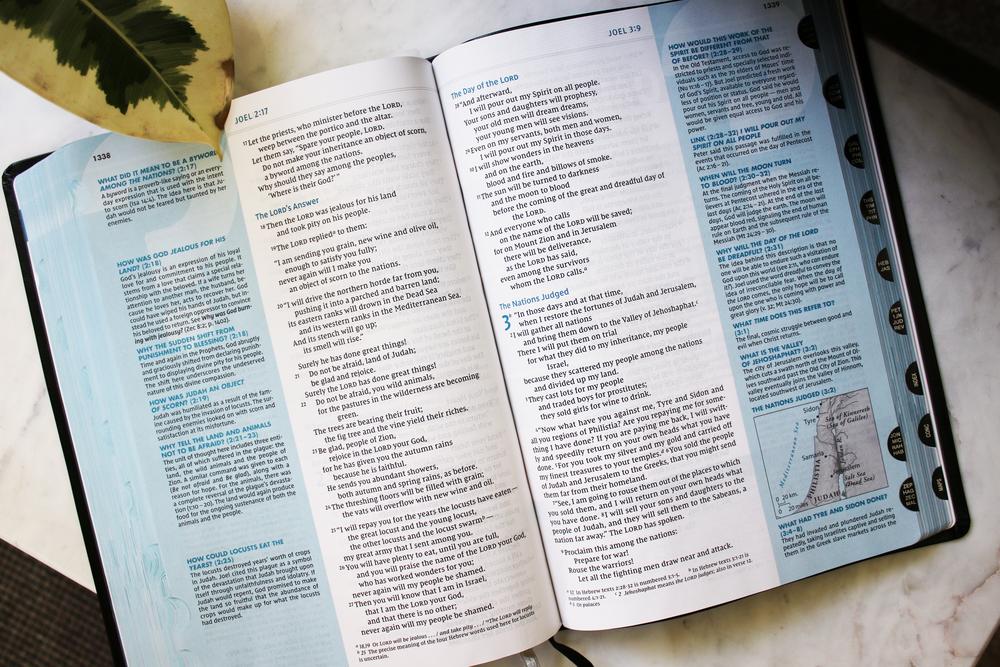 1338
JOEL 2:17
WHAT DID IT MEAN TO BE A BYWORD
AMONG THE NATIONS? (2:17)
A byword is a proverb-like saying or an every-
day expression that is used with the intent
to scorn (Isa 14:4). The idea here is that Ju-
dah would not be feared but taunted by her
enemies.
HOW WAS GOD JEALOUS FOR HIS
LAND? (2:18)
God's jealousy is an expression of his loyal
love for and commitment to his people. It
stems from a love that claims a special rela-
tionship with the beloved. If a wife turns her
attention to another man, the husband, be-
cause he loves her, acts to recover her. God
could have wiped his hands of Judah, but in-
stead he used a foreign oppressor to convince
his beloved to return. See Why was God burn-
ing with jealousy? (Zec 8:2; p. 1402).
WHY THE SUDDEN SHIFT FROM
PUNISHMENT TO BLESSING? (2:18)
Time and again in the Prophets, God abruptly
and graciously shifted from declaring punish-
ment to displaying divine pity for his people.
The shift here underscores the undeserved
nature of this divine compassion.
HOW WAS JUDAH AN OBJECT
OF SCORN? (2:19)
Judah was humiliated as a result of the fam-
ine caused by the invasion of locusts. The sur-
rounding enemies looked on with scorn and
satisfaction at its misfortune.
WHY TELL THE LAND AND ANIMALS
NOT TO BE AFRAID? (2:21–23)
The unit of thought here includes three enti-
ties, all of which suffered in the plague: the
land, the wild animals and the people of
Zion. A similar command was given to each
(Be not afraid and Be glad), along with a
reason for hope. For the animals, there was
a complete reversal of the plague's devasta-
tion (1:10–20). The land would again produce
food for the ongoing sustenance of both the
animals and the people.
HOW COULD LOCUSTS EAT THE
YEARS? (2:25)
The locusts destroyed years' worth of crops
in Judah. Joel cited this plague as a symbol
of the devastation that Judah brought upon
itself through unfaithfulness and idolatry. If
Judah would repent, God promised to make
the land so fruitful that the abundance of
crops would make up for what the locusts
had destroyed.
17 Let the priests, who minister before the LORD,
weep between the portico and the altar.
Let them say, "Spare your people, LORD.
Do not make your inheritance an object of scorn,
a byword among the nations.
Why should they say among the peoples,
'Where is their God?'"
The LORD's Answer
18 Then the LORD was jealous for his land
and took pity on his people.
19 The LORD replied a to them:
"I am sending you grain, new wine and olive oil,
enough to satisfy you fully;
never again will I make you
an object of scorn to the nations.
20 "I will drive the northern horde far from you,
pushing it into a parched and barren land;
its eastern ranks will drown in the Dead Sea
and its western ranks in the Mediterranean Sea.
And its stench will go up;
its smell will rise."
Surely he has done great things!
21 Do not be afraid, land of Judah;
be glad and rejoice.
Surely the LORD has done great things!
22 Do not be afraid, you wild animals,
for the pastures in the wilderness are becoming
green.
The trees are bearing their fruit;
the fig tree and the vine yield their riches.
23 Be glad, people of Zion,
rejoice in the LORD your God,
for he has given you the autumn rains
because he is faithful.
He sends you abundant showers,
both autumn and spring rains, as before.
24 The threshing floors will be filled with grain;
the vats will overflow with new wine and oil.
25 "I will repay you for the years the locusts have eaten—
the great locust and the young locust,
the other locusts and the locust swarm b—
my great army that I sent among you.
26 You will have plenty to eat, until you are full,
and you will praise the name of the LORD your God,
who has worked wonders for you;
never again will my people be shamed.
27 Then you will know that I am in Israel,
that I am the LORD your God,
and that there is no other;
never again will my people be shamed.
a 18,19 Or LORD will be jealous . . . / and take pity . . . / 19 The LORD will reply
b 25 The precise meaning of the four Hebrew words used here for locusts
is uncertain.
JOEL 3:9
1339
The Day of the LORD
28 "And afterward,
I will pour out my Spirit on all people.
Your sons and daughters will prophesy,
your old men will dream dreams,
your young men will see visions.
29 Even on my servants, both men and women,
I will pour out my Spirit in those days.
30 I will show wonders in the heavens
and on the earth,
blood and fire and billows of smoke.
31 The sun will be turned to darkness
and the moon to blood
before the coming of the great and dreadful day of
the LORD.
32 And everyone who calls
on the name of the LORD will be saved;
for on Mount Zion and in Jerusalem
there will be deliverance,
as the LORD has said,
even among the survivors
whom the LORD calls. a
The Nations Judged
3 b "In those days and at that time,
when I restore the fortunes of Judah and Jerusalem,
2 I will gather all nations
and bring them down to the Valley of Jehoshaphat. c
There I will put them on trial
for what they did to my inheritance, my people
Israel,
because they scattered my people among the nations
and divided up my land.
3 They cast lots for my people
and traded boys for prostitutes;
they sold girls for wine to drink.
4 "Now what have you against me, Tyre and Sidon and
all you regions of Philistia? Are you repaying me for some-
thing I have done? If you are paying me back, I will swift-
ly and speedily return on your own heads what you have
done. 5 For you took my silver and my gold and carried off
my finest treasures to your temples. d 6 You sold the people
of Judah and Jerusalem to the Greeks, that you might send
them far from their homeland.
7 "See, I am going to rouse them out of the places to which
you sold them, and I will return on your own heads what
you have done. 8 I will sell your sons and daughters to the
people of Judah, and they will sell them to the Sabeans, a
nation far away." The LORD has spoken.
9 Proclaim this among the nations:
Prepare for war!
Rouse the warriors!
Let all the fighting men draw near and attack.
a 32 In Hebrew texts 2:28-32 is numbered 3:1-5. b In Hebrew texts 3:1-21 is
numbered 4:1-21. c 2 Jehoshaphat means the LORD judges; also in verse 12.
d 5 Or palaces
HOW WOULD THIS WORK OF THE
SPIRIT BE DIFFERENT FROM THAT
OF BEFORE? (2:28–29)
In the Old Testament, access to God was re-
stricted to priests and specially selected indi-
viduals such as the 70 elders of Moses' time
(Nu 11:16–17). But Joel predicted a fresh work
of God's Spirit, available to everyone regard-
less of position or status. God said he would
pour out his Spirit on all people — men and
women, servants and free, young and old. All
would be given equal access to God and his
power.
LINK (2:28–32) I WILL POUR OUT MY
SPIRIT ON ALL PEOPLE
Peter said this passage was fulfilled in the
events that occurred on the day of Pentecost
(Ac 2:16–21).
WHEN WILL THE MOON TURN
TO BLOOD? (2:30–32)
WHY WILL THE DAY OF THE LORD
BE DREADFUL? (2:31)
WHAT TIME DOES THIS REFER TO?
(3:1)
The final, cosmic struggle between good and
evil when Christ returns.
WHAT IS THE VALLEY
OF JEHOSHAPHAT? (3:2)
The city of Jerusalem overlooks this valley,
which cuts a swath north of the Mount of Ol-
ives southeast past the old City of Zion. This
valley eventually joins the Valley of Hinnom,
located southwest of Jerusalem.
THE NATIONS JUDGED (3:2)
Sidon
Sea of Kinnereth
(Sea of Galilee)
Mediterranean Sea
Samaria
PHILISTIA
JUDAH
Salt Sea
(Dead Sea)
0 20 km.
0 20 miles
WHAT HAD TYRE AND SIDON DONE?
(3:4–8)
They had invaded and plundered Judah re-
peatedly, taking Israelites captive and selling
them in the Greek slave markets across the
INDEX
CONC
MAPS